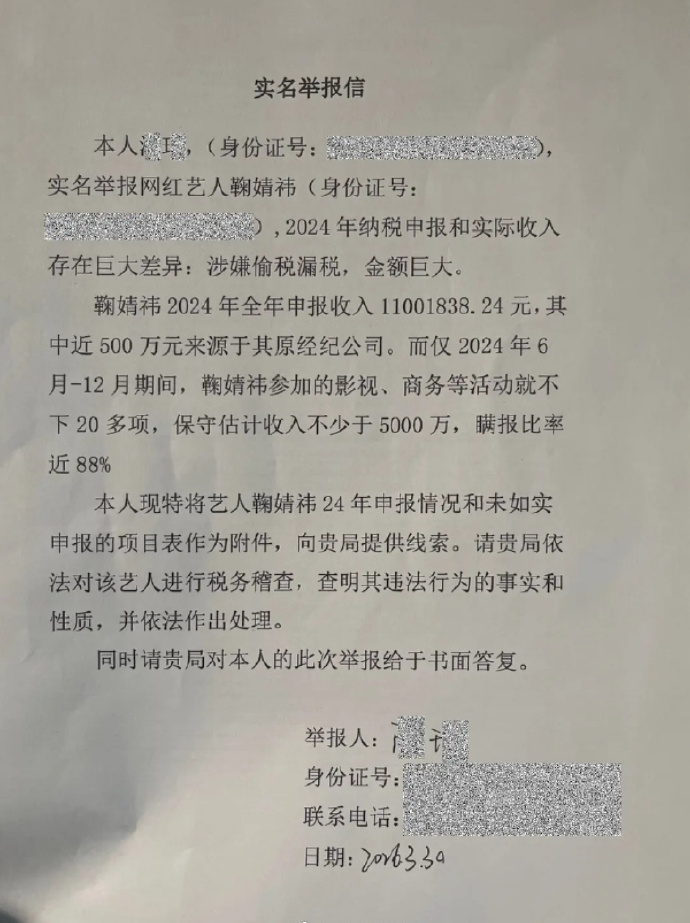 实名举报信
本人，（身份证号：），
实名举报网红艺人鞠婧祎（身份证号：
），2024年纳税申报和实际收入
存在巨大差异：涉嫌偷税漏税，金额巨大。
鞠婧祎2024年全年申报收入11001838.24元，其
中近500万元来源于其原经纪公司。而仅2024年6
月-12月期间，鞠婧祎参加的影视、商务等活动就不
下20多项，保守估计收入不少于5000万，瞒报比率
近88%
本人现特将艺人鞠婧祎24年申报情况和未如实
申报的项目表作为附件，向贵局提供线索。请贵局依
法对该艺人进行税务稽查，查明其违法行为的事实和
性质，并依法作出处理。
同时请贵局对本人的此次举报给于书面答复。
举报人：
身份证号：
联系电话：
日期：2026.3.30